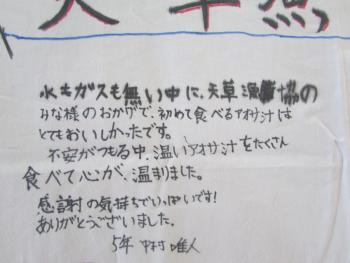 天草漁
水もガスも無い中に、天草漁協の
みな様のおかげで、初めて食べるアオサ汁は
とてもおいしかったです。
不安がつもる中、温いアオサ汁をたくさん
食べて心が、温まりました。
感謝の気持ちでいっぱいです!
ありがとうございました。
5年 中村 唯人